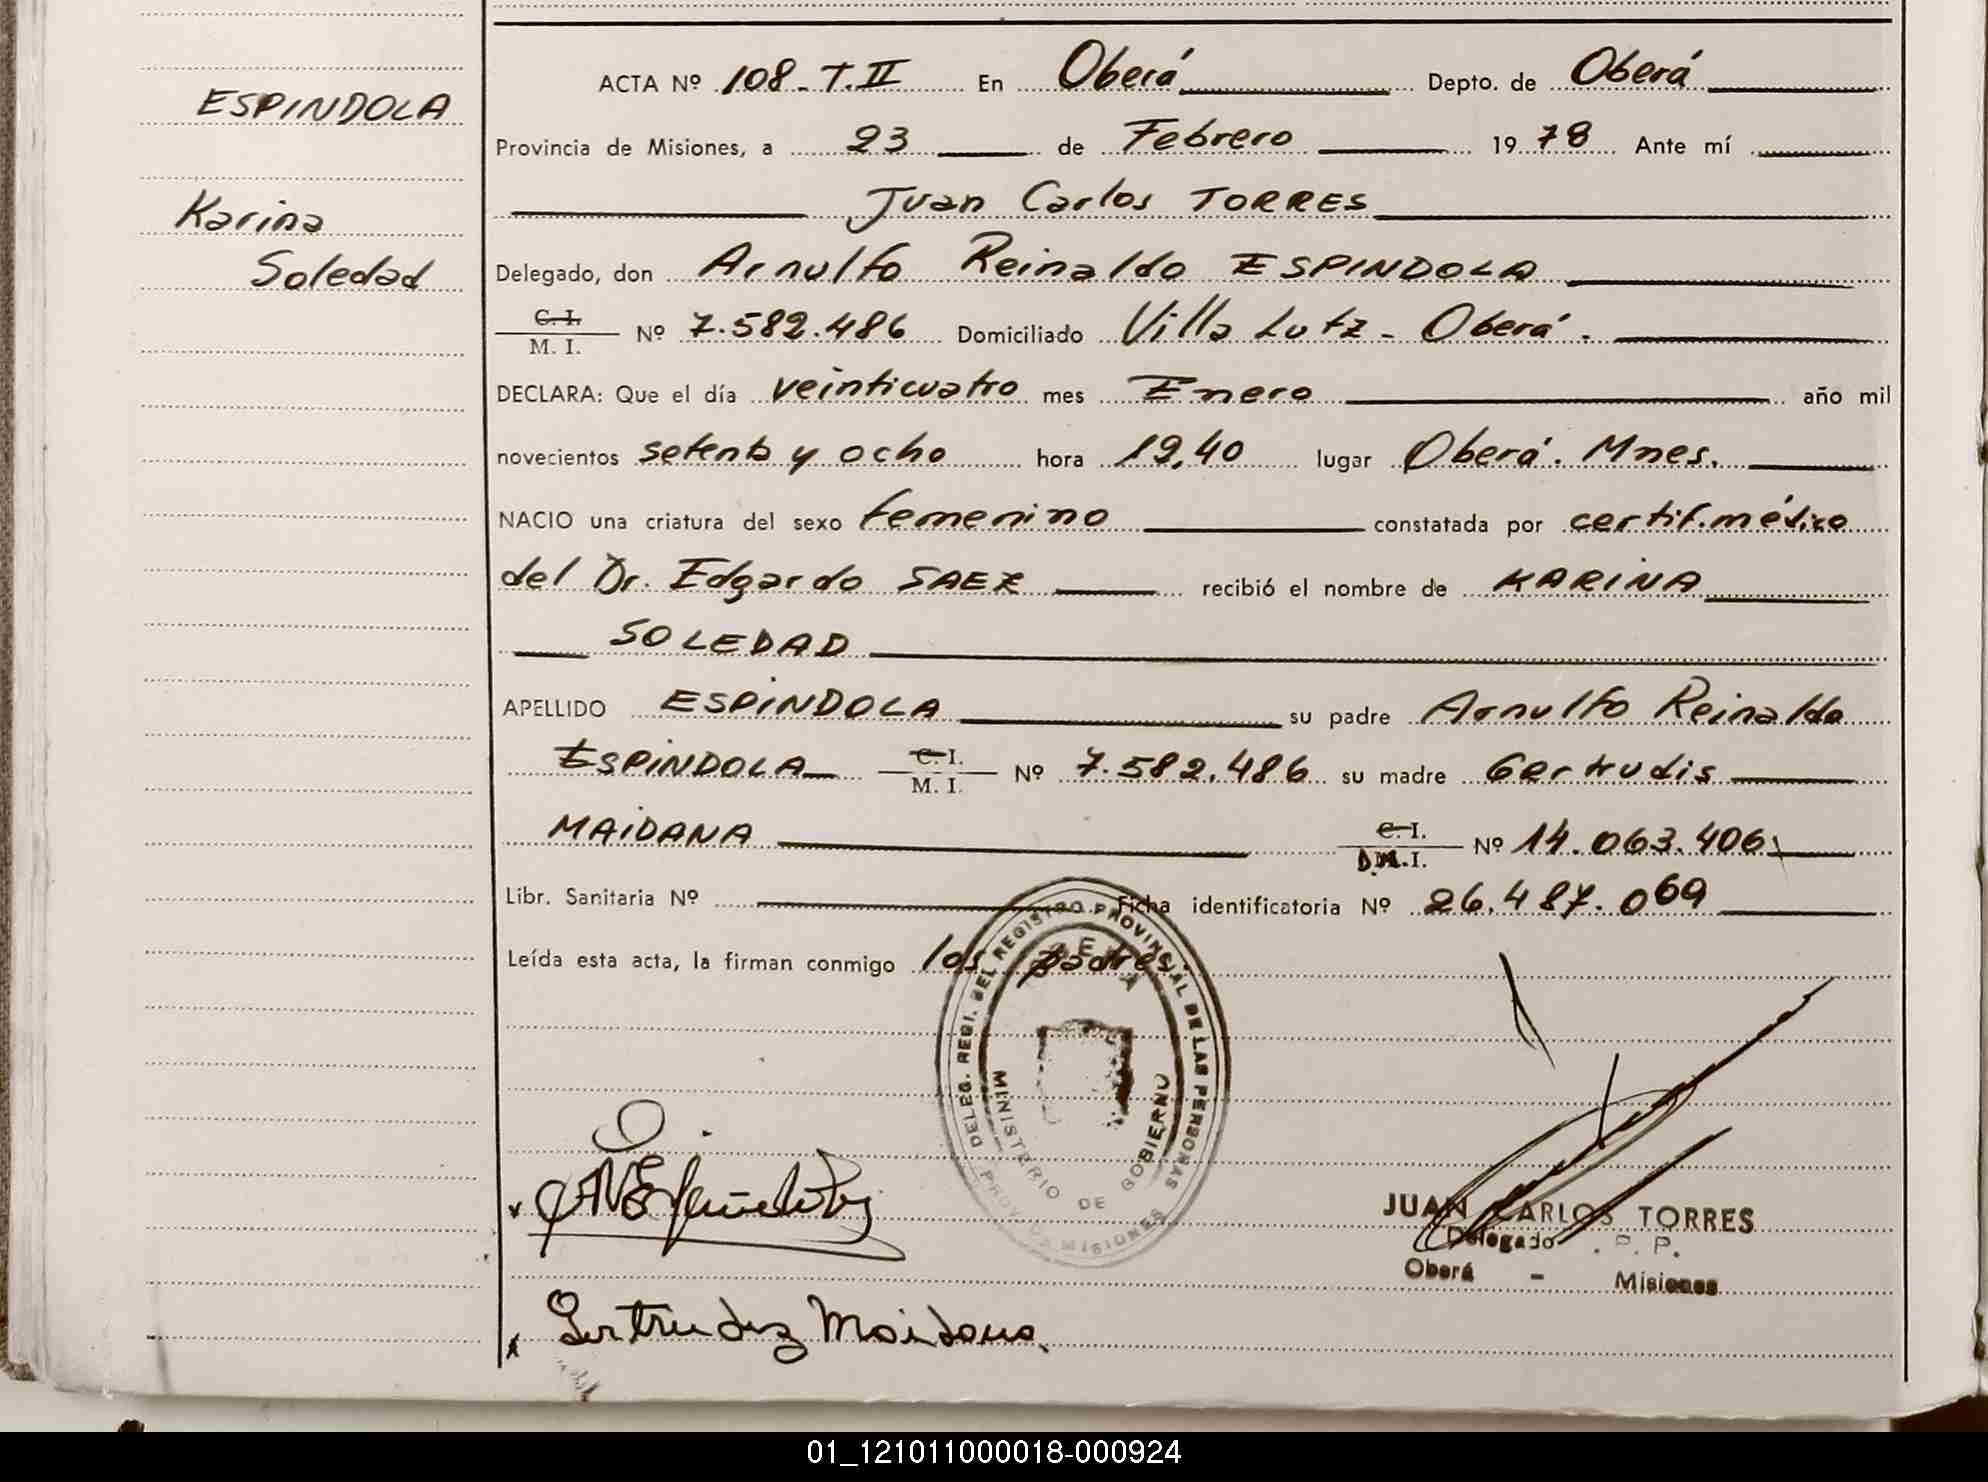 ESPINDOLA
Karina
Soledad
ACTA Nº 108 - T. II En Oberá Depto. de Oberá
Provincia de Misiones, a 23 de Febrero 1978 Ante mí
Juan Carlos TORRES
Delegado, don Arnulfo Reinaldo ESPINDOLA
C. I.
M. I. Nº 7.582.486 Domiciliado Villa Lutz - Oberá.
DECLARA: Que el día veinticuatro mes Enero año mil
novecientos setenta y ocho hora 19,40 lugar Oberá. Mnes.
NACIO una criatura del sexo femenino constatada por certif. médico
del Dr. Edgardo SAEZ recibió el nombre de KARINA
SOLEDAD
APELLIDO ESPINDOLA su padre Arnulfo Reinaldo
ESPINDOLA C. I.
M. I. Nº 7.582.486 su madre Gertrudis
MAIDANA C. I.
D.N.I. Nº 14.063.406
Libr. Sanitaria Nº Ficha identificatoria Nº 26.487.069
Leída esta acta, la firman conmigo los padres.
DELEG. REGI. DEL REGISTRO PROVINSIAL DE LAS PERSONAS
OBERA
MINISTERIO DE GOBIERNO
PROV. DE MISIONES
JUAN CARLOS TORRES
Delegado . P. P.
Oberá - Misiones
Gertrudez Maidana
01_121011000018-000924